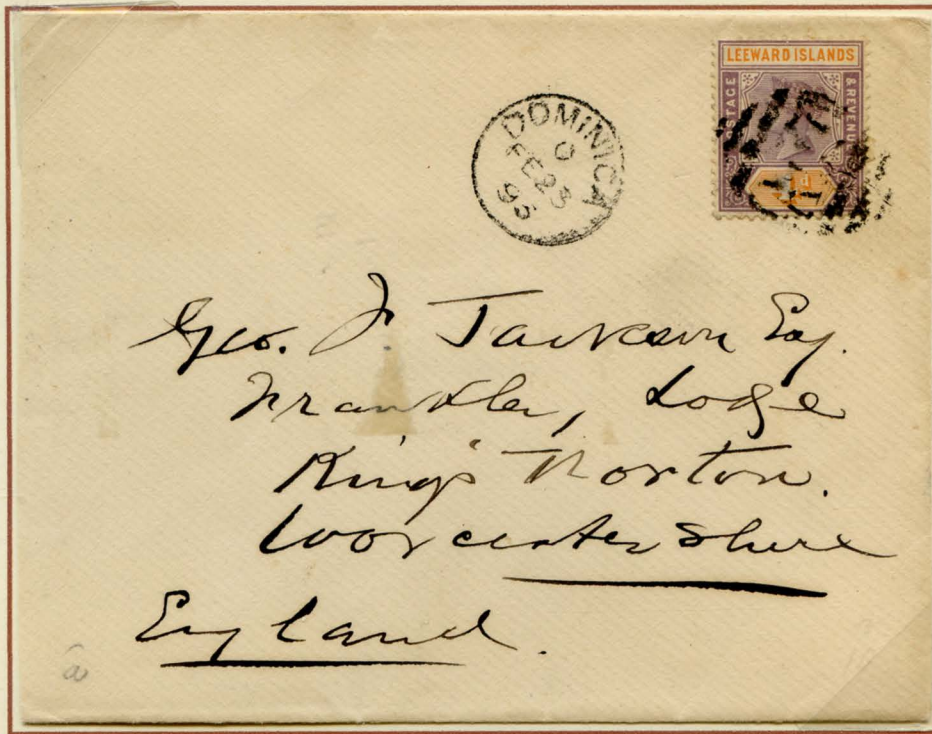 LEEWARD ISLANDS
POSTAGE & REVENUE
DOMINICA
FE 23
95
Geo. J. Jackson Esq.
Frankley, Lodge
King's Norton.
Worcestershire
England.
a